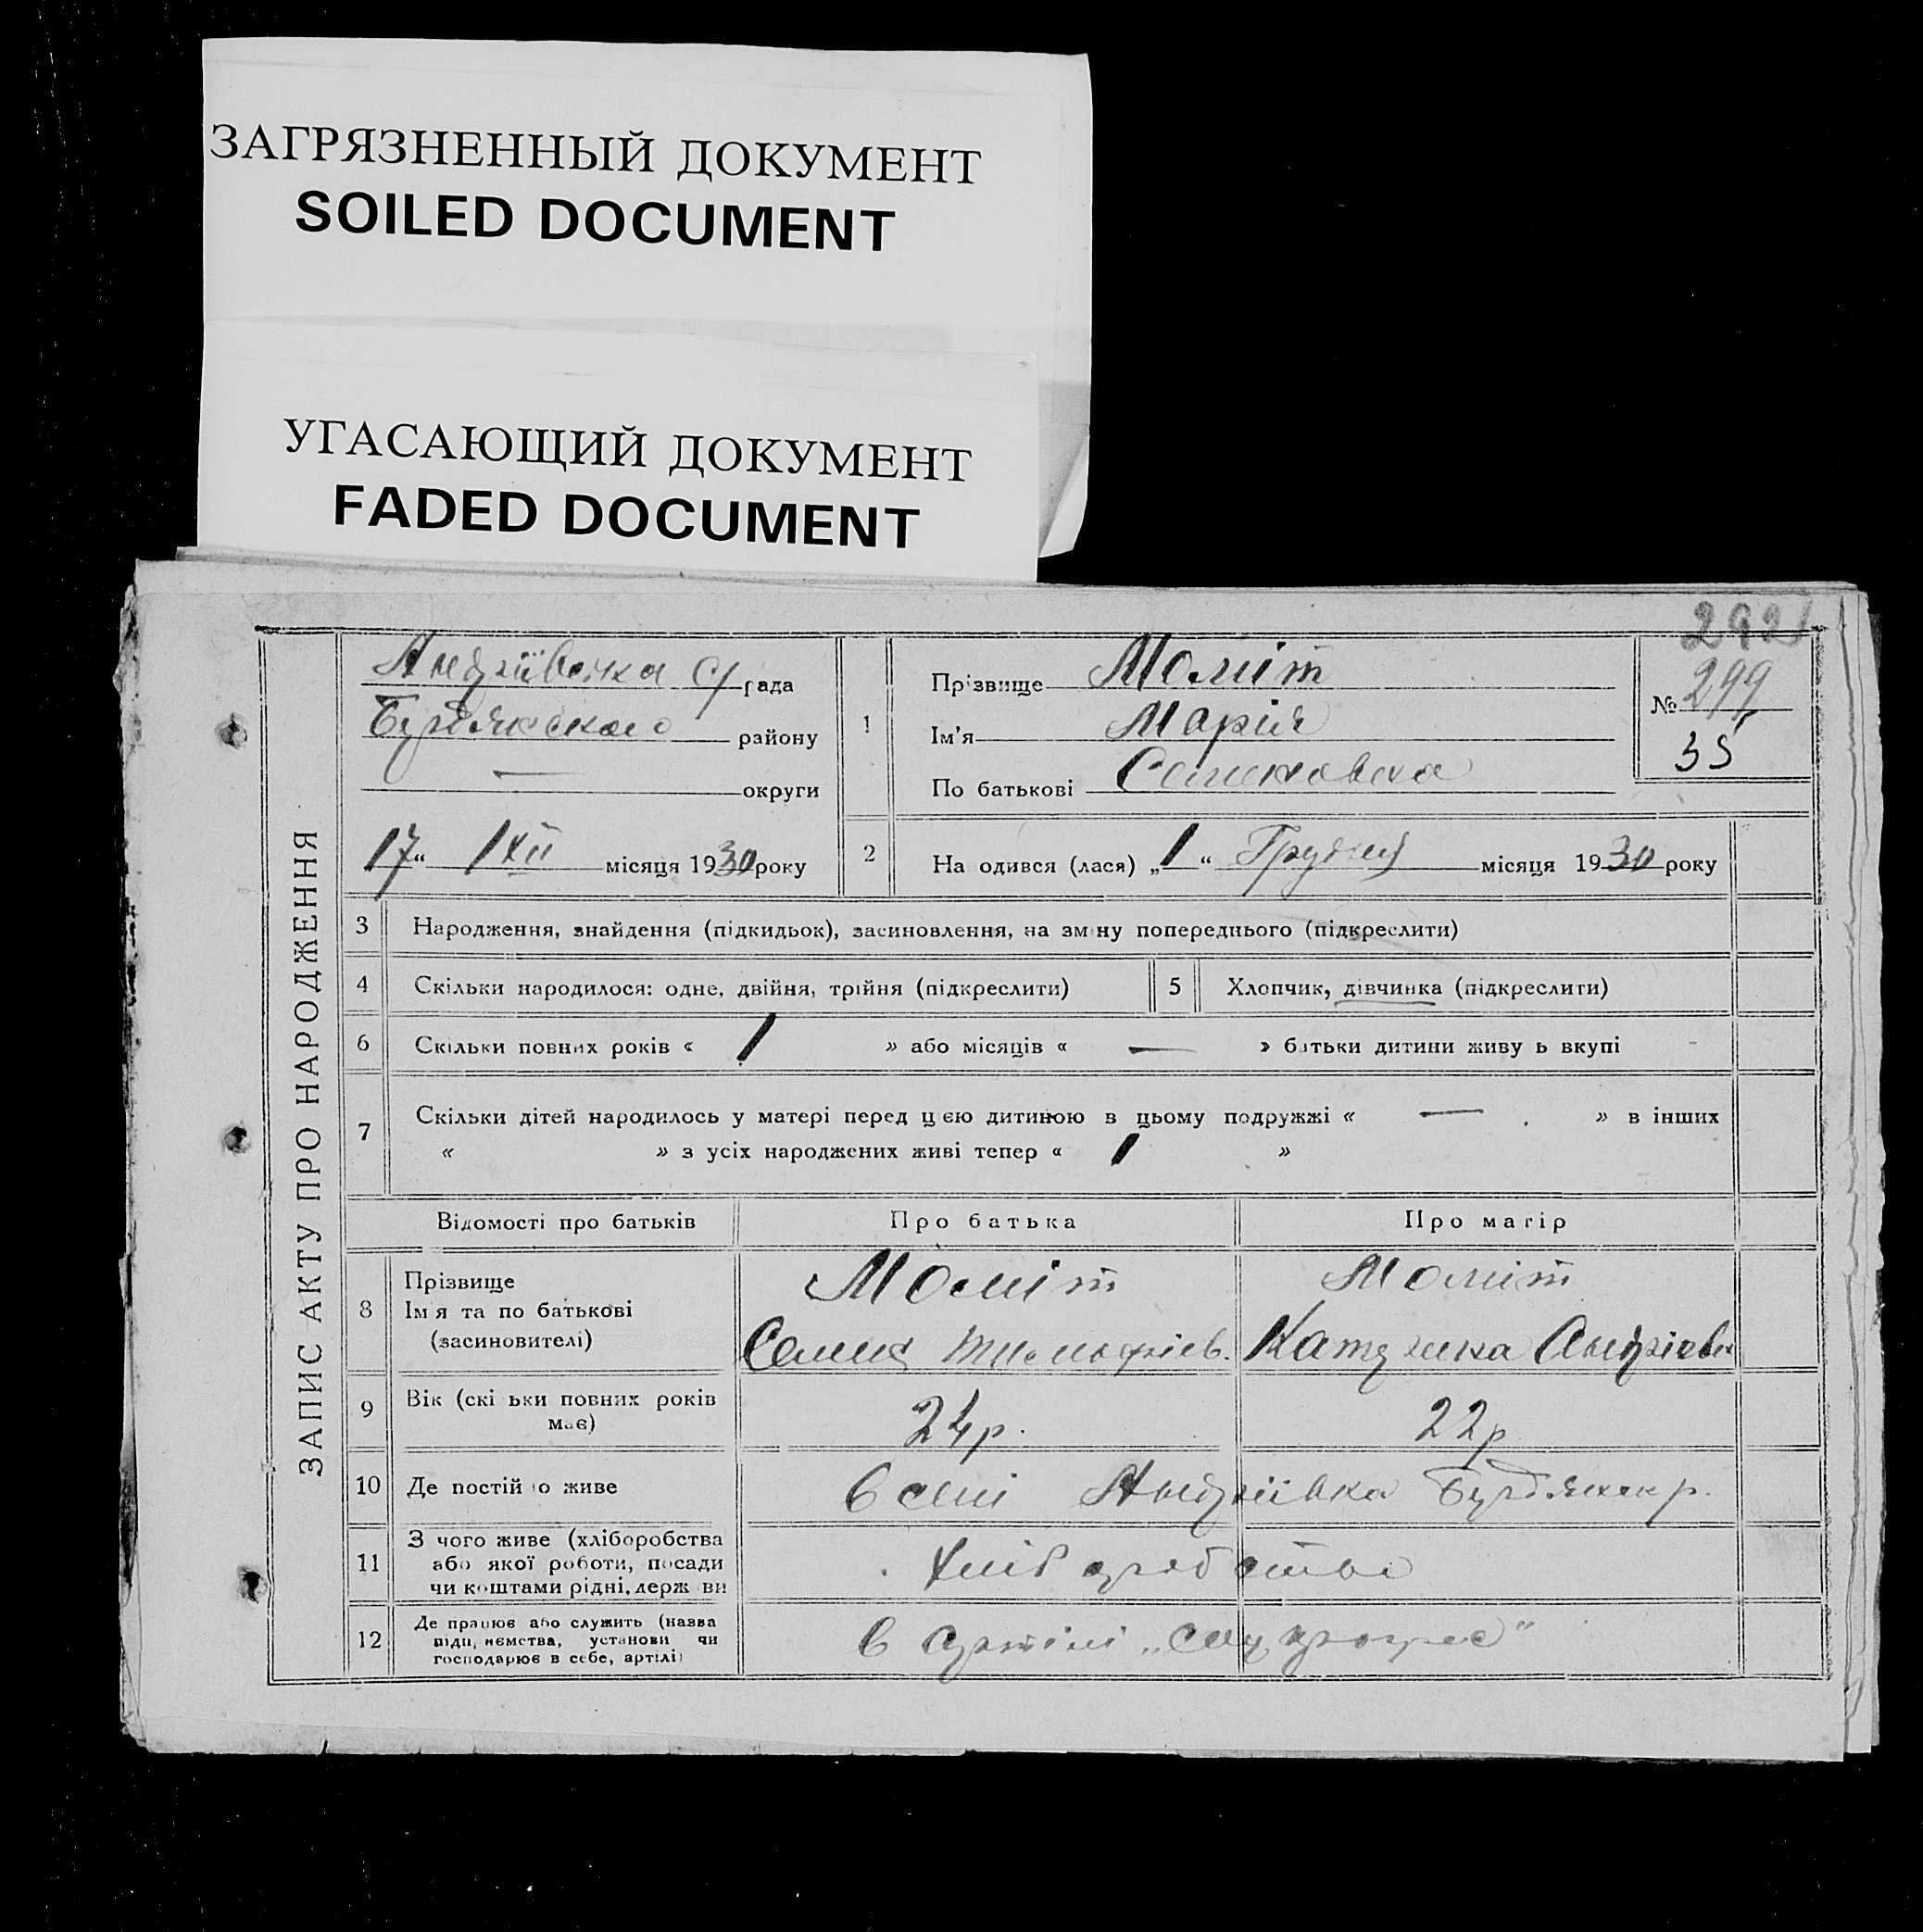 ЗАГРЯЗНЕННЫЙ ДОКУМЕНТ
SOILED DOCUMENT
УГАСАЮЩИЙ ДОКУМЕНТ
FADED DOCUMENT
ЗАПИС АКТУ ПРО НАРОДЖЕННЯ
Андріївська с/рада
району
— округи
17 “ XII місяця 1930 року
1
Прізвище Моліт
Ім'я Марія
По батькові
№ 299
35
2 На одився (лася) „ 1 “ Грудня місяця 1930 року
3 Народження, знайдення (підкидьок), засиновлення, на зміну попереднього (підкреслити)
4 Скільки народилося: одне, двійня, трійня (підкреслити)
5 Хлопчик, дівчинка (підкреслити)
6 Скільки повних років « 1 » або місяців « — » батьки дитини живу ь вкупі
7 Скільки дітей народилось у матері перед цією дитиною в цьому подружжі « — » в інших
« » з усіх народжених живі тепер « 1 »
Відомості про батьків Про батька Про матір
8 Прізвище Моліт Моліт
Ім'я та по батькові
(засиновителі) Семен Тимофіев. Катерина Андріевн
9 Вік (скі ьки повних років
має) 24р. 22р
10 Де постій о живе в селі Андріївка
11 З чого живе (хліборобства
або якої роботи, посади
чи коштами рідні, держ ви
12 Де працює або служить (назва
підп, иємства, установи чи
господарює в себе, артілі)
в артілі